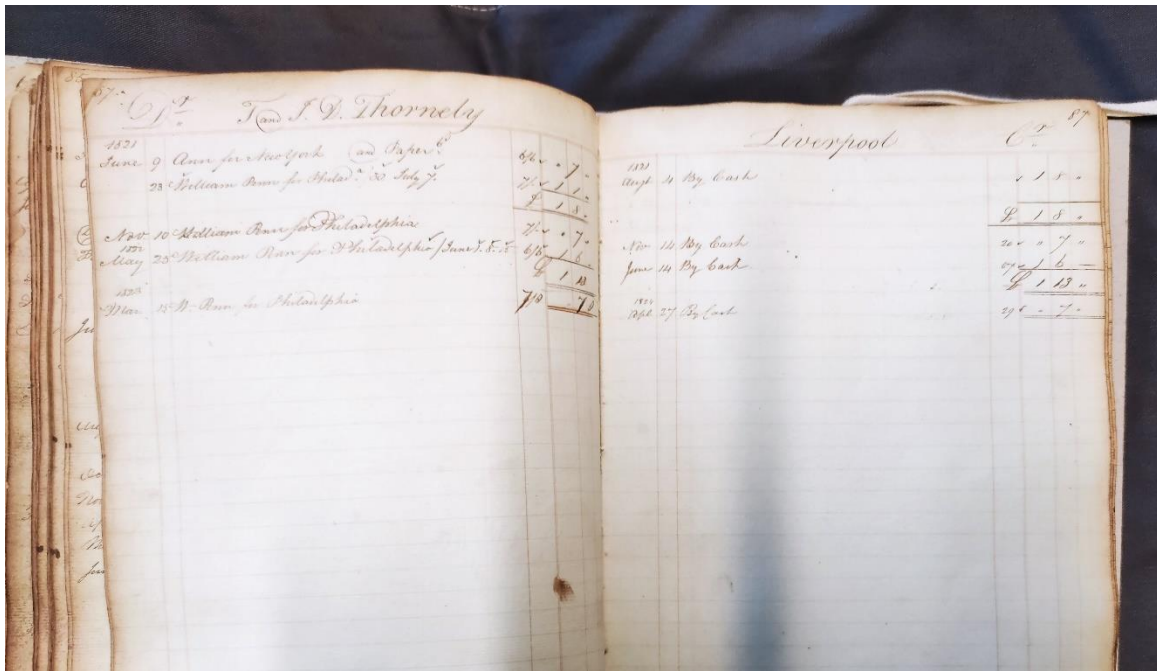 87
Dr T and J. D. Thornely
1821
June 9 Ann for New York and Paper 6/6 " 7 "
23 William Penn for Philada 30 July 7. 7/ 1 1 "
£ 1 8 "
Nov 10 William Penn for Philadelphia 7/ " 7 "
May 25 William Penn for Philadelphia / June 1. 8. 15 6/6 1 6
£ 1 13
Mar 15 Wm Penn for Philadelphia 7/0 7
Liverpool Cr 87
1821
Augt 4 By Cash 1 8 "
£ 1 8 "
Nov 14 By Cash 20 " 7 "
June 14 By Cash 1 6
£ 1 13 "
27 By Cash 29 " 7 "